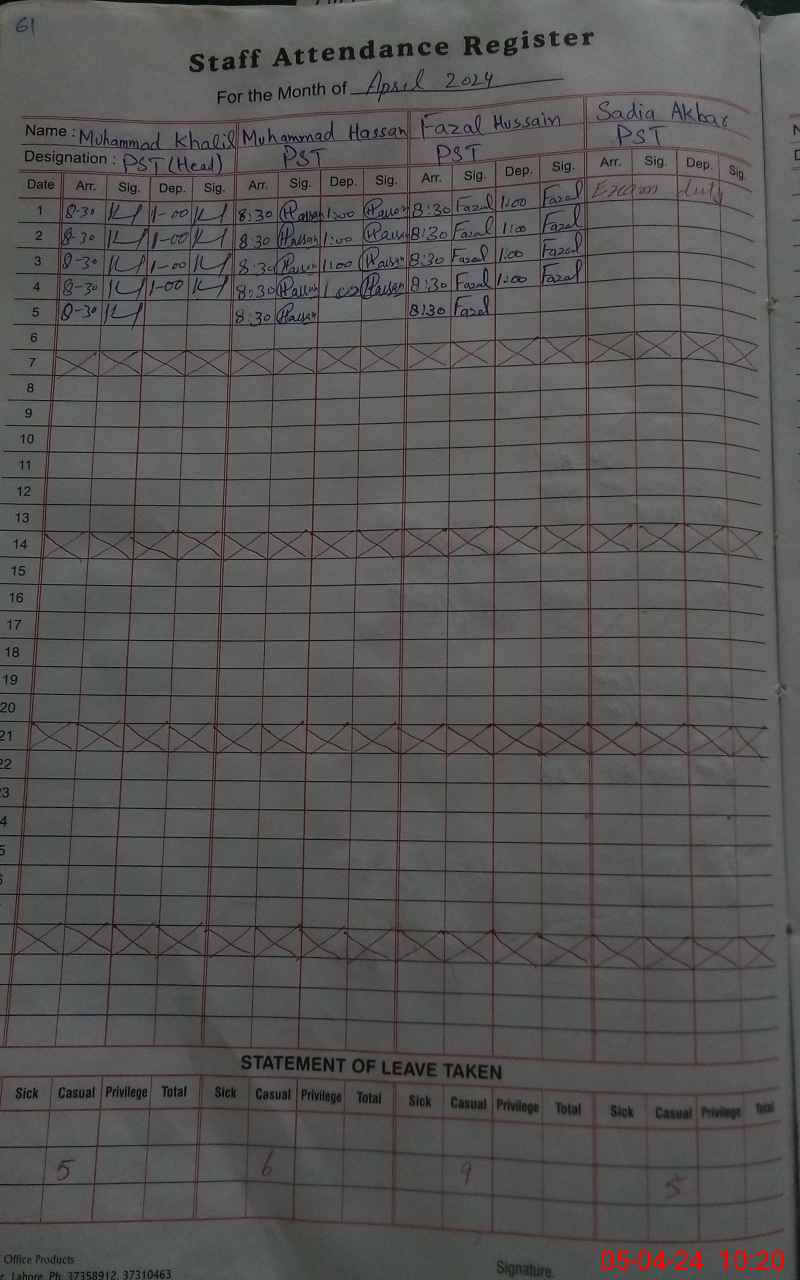 61
Staff Attendance Register
For the Month of April 2024
Name : Muhammad Khalil Muhammad Hassan Fazal Hussain Sadia Akbar
Designation : PST (Head) PST PST PST
Date Arr. Sig. Dep. Sig. Arr. Sig. Dep. Sig. Arr. Sig. Dep. Sig. Arr. Sig. Dep. Sig.
1 8-30 1-00 8:30 Hassan 1:00 Hassan 8:30 Fazal 1:00 Fazal Exam duty
2 8-30 1-00 8:30 Hassan 1:00 Hassan 8:30 Fazal 1:00 Fazal
3 8-30 1-00 8:30 Hassan 1:00 Hassan 8:30 Fazal 1:00 Fazal
4 8-30 1-00 8:30 Hassan 1:00 Hassan 8:30 Fazal 1:00 Fazal
5 8-30 8:30 Hassan 8:30 Fazal
6
7
8
9
10
11
12
13
14
15
16
17
18
19
20
21
22
3
4
5
STATEMENT OF LEAVE TAKEN
Sick Casual Privilege Total Sick Casual Privilege Total Sick Casual Privilege Total Sick Casual Privilege Total
5 6 9 5
Office Products
Lahore, Ph: 37358912, 37310463
Signature.
05-04-24 10:20